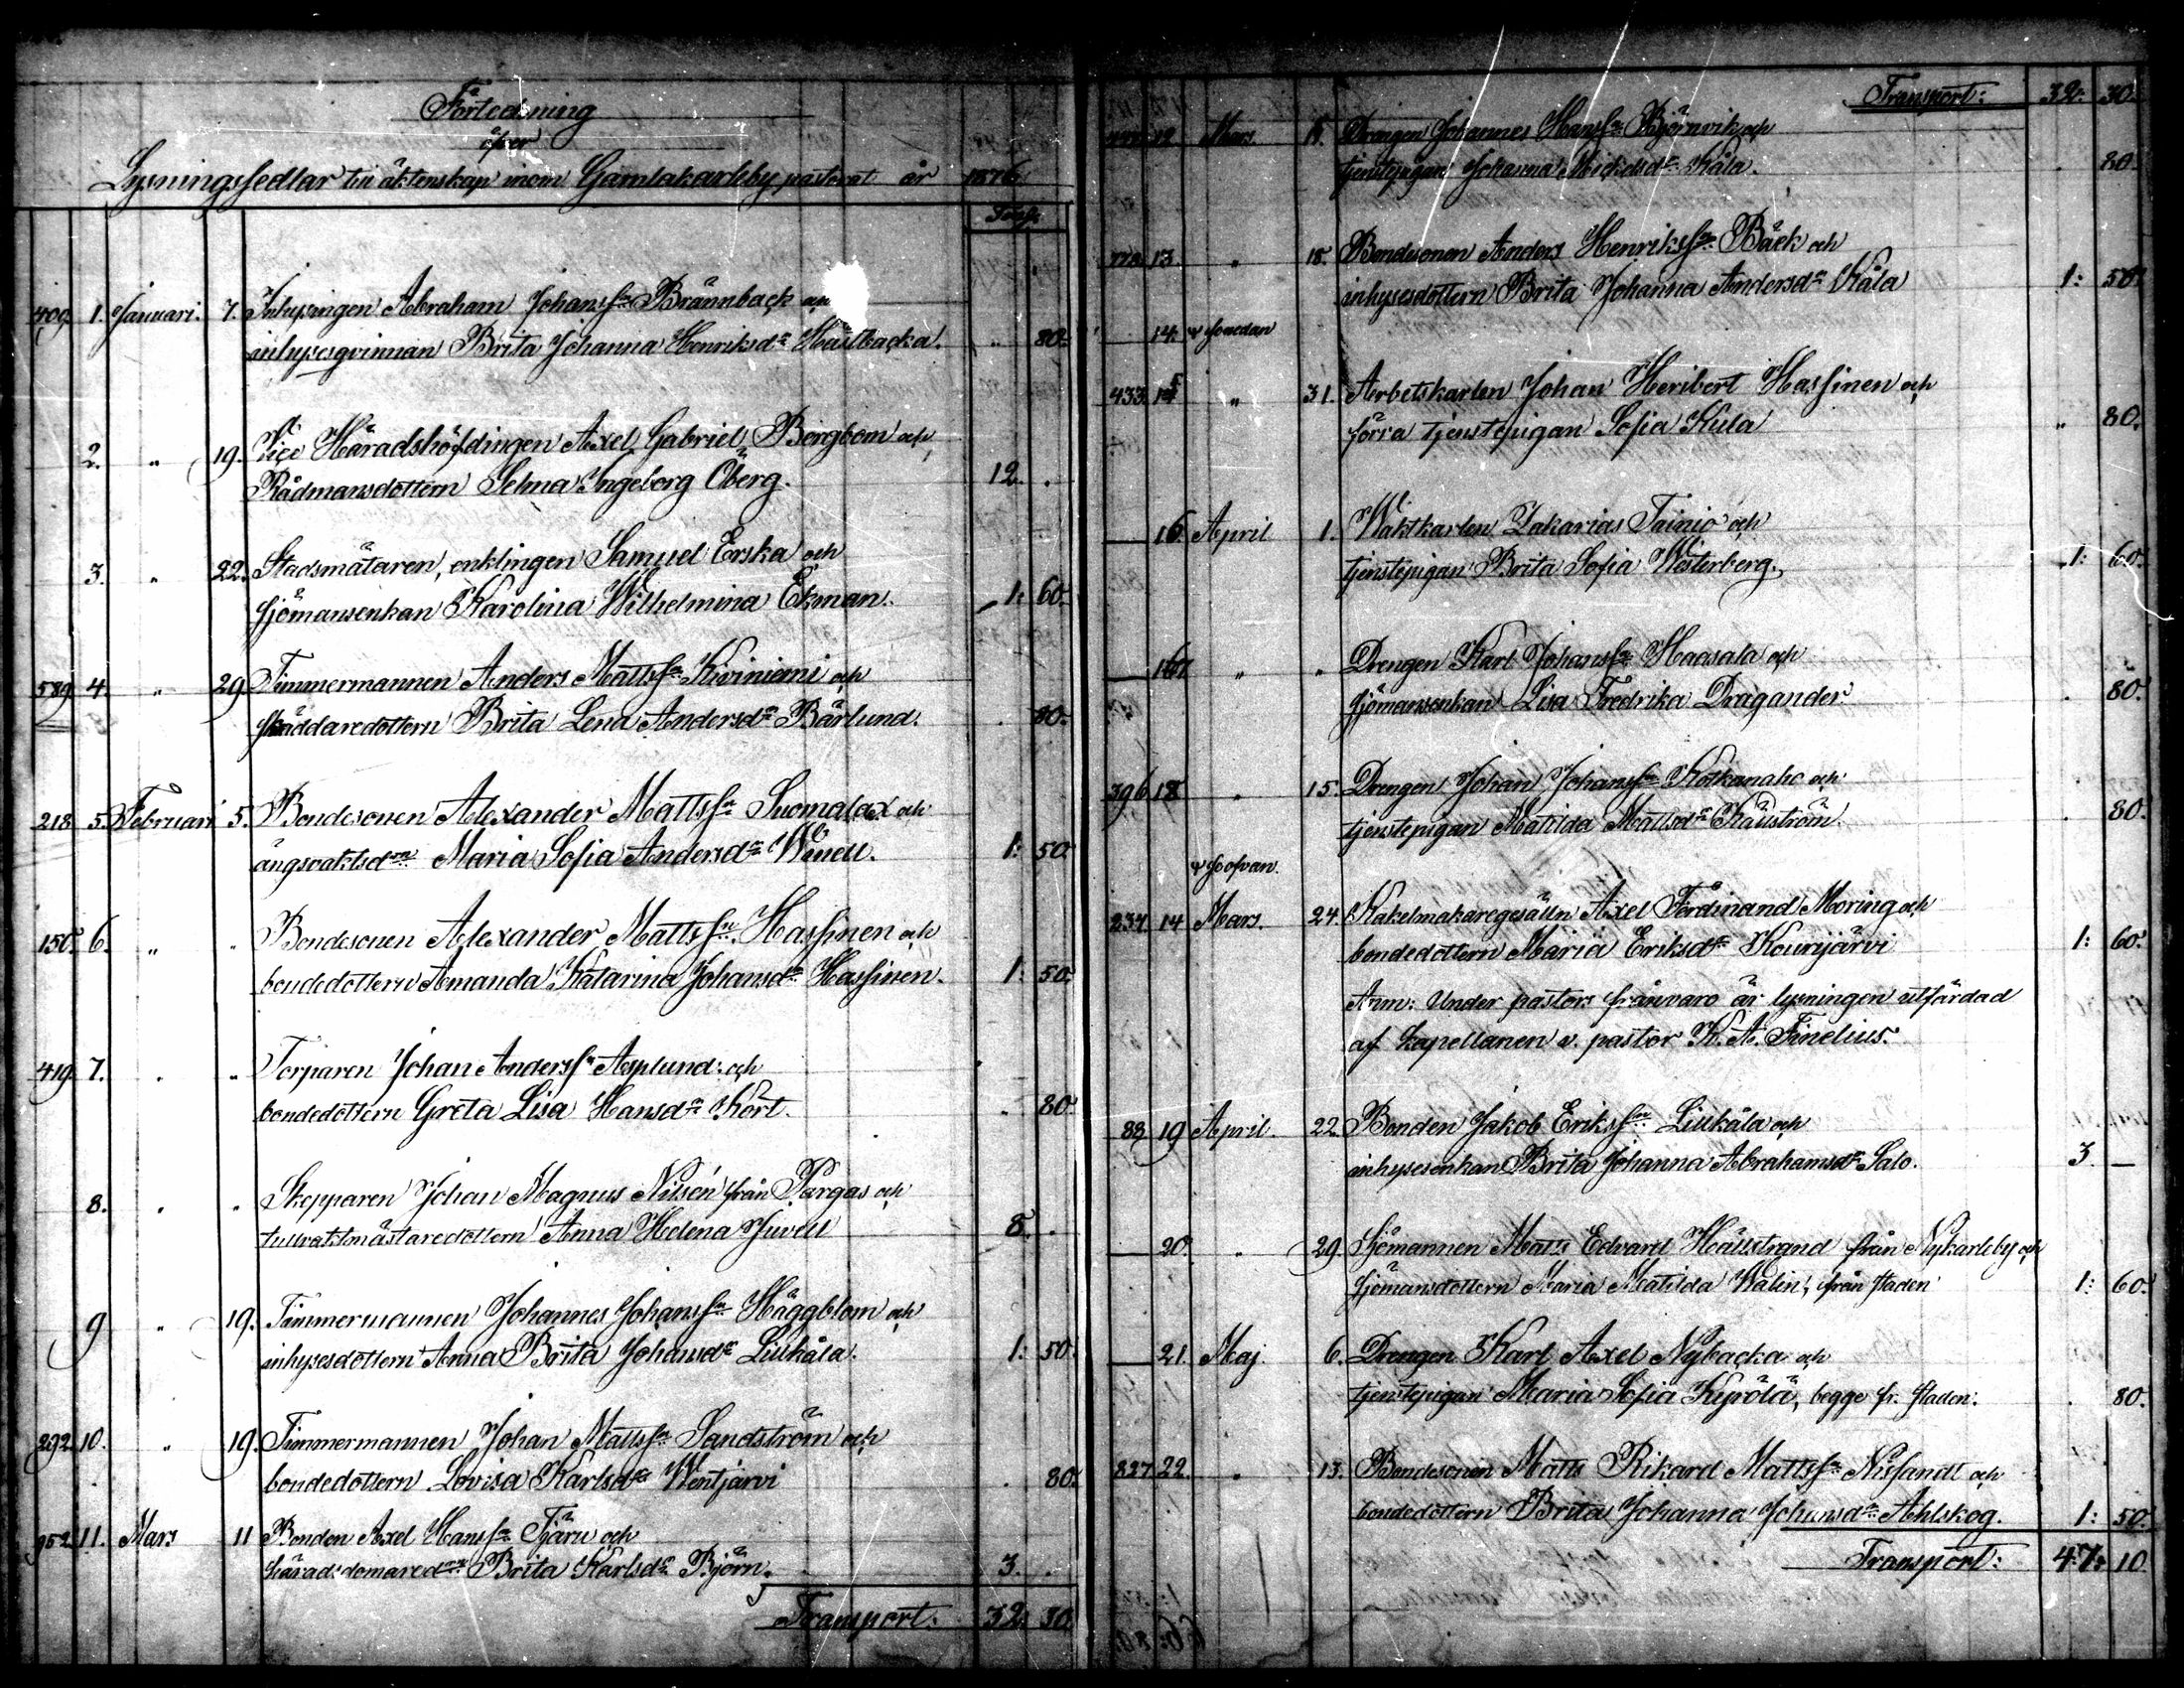 Förteckning
öfver
Lysningssedlar till äktenskap inom Gamlakarleby pastorat år 1876
400. 1. Januari. 7. Inhysingen Abraham Johansson Brännback
inhysesqvinnan Brita Johanna Henriksdr Hästbacka. " 80.
2. " 19. Vice Häradshöfdingen Axel Gabriel Bergbom och
Rådmansdottern Selma Ingeborg Öberg. 12. .
3. " 22. Stadsmätaren, enklingen Samuel Erska och
sjömansenkan Karolina Wilhelmina Ekman. 1: 60.
589. 4. " 29. Timmermannen Anders Mattssn Kiviniemi och
skräddaredottern Brita Lena Andersdr Bärlund. . 80.
218. 5. Februari 5. Bondesonen Alexander Mattssn Suomalax och
ängsvaktsdrn Maria Sofia Andersdr Winell. 1: 50.
150. 6. " " Bondesonen Alexander Mattssn Hassinen och
bondedottern Amanda Katarina Johansdr Hassinen. 1: 50.
419. 7. " " Torparen Johan Anderssn Asplund och
bondedottern Greta Lisa Hansdr Kort. . 80.
8. " " Skepparen Johan Magnus Nilsén från Pargas och
tullvaktmästaredottern Anna Helena Juvell 8. .
9 " 19. Timmermannen Johannes Johanssn Häggblom och
inhysesdottern Anna Brita Johansdr Liukåla. 1: 50.
292. 10. " 19. Timmermannen Johan Mattssn Sandström och
bondedottern Lovisa Karlsdr Wentjärvi . 80.
952. 11. Mars 11 Bonden Axel Hanssn Tjäru och
häradsdomaredrn Brita Karlsdr Björn. 3. .
Transport: 32. 30
Transport: 32. 30.
12 Mars. Drengen Johannes Hanssn Björnvik och
tjenstepigan Johanna Mickelsdr Kåla. . 80.
778. 13. " 18. Bondesonen Anders Henrikssn Bäck och
inhysesdottern Brita Johanna Andersdr Kåla 1: 50.
14.
433. 15 " 31. Arbetskarlen Johan Heribert Hassinen och
förra tjenstepigan Sofia Kula " 80.
16 April 1. Waktkarlen Zakarias Tainio och
tjenstepigan Brita Sofia Westerberg. 1: 60.
17 " " Drengen Karl Johanssn Haasala och
sjömansenkan Lisa Fredrika Dragander. . 80.
396 18 " 15. Drengen Johan Johanssn Koskenaho och
tjenstepigan Matilda Mattsdr Källström. . 80.
237 14 Mars. 24. Kakelmakaregesälln Axel Ferdinand Moring och
bondedottern Maria Eriksdr Kourijärvi 1: 60.
Anm: Under pastors frånvaro är lysningen utfärdad
af kapellanen v. pastor K. A. Finelius.
88 19 April. 22. Bonden Jakob Erikssn Liukåla och
inhysesenkan Brita Johanna Abrahamsdr Salo. 3. —
20 " 29 Sjömannen Matts Edvard Hällstrand från Nykarleby och
sjömansdottern Maria Matilda Wålin, från staden 1: 60.
21. Maj. 6. Drengen Karl Axel Nybacka och
tjenstepigan Maria Sofia Kyrölä, begge fr. staden. . 80.
837 22. " 13. Bondesonen Matts Rikard Mattssn Nissandt och
bondedottern Brita Johanna Johansdr Ahlskog. 1: 50.
Transport: 47. 10